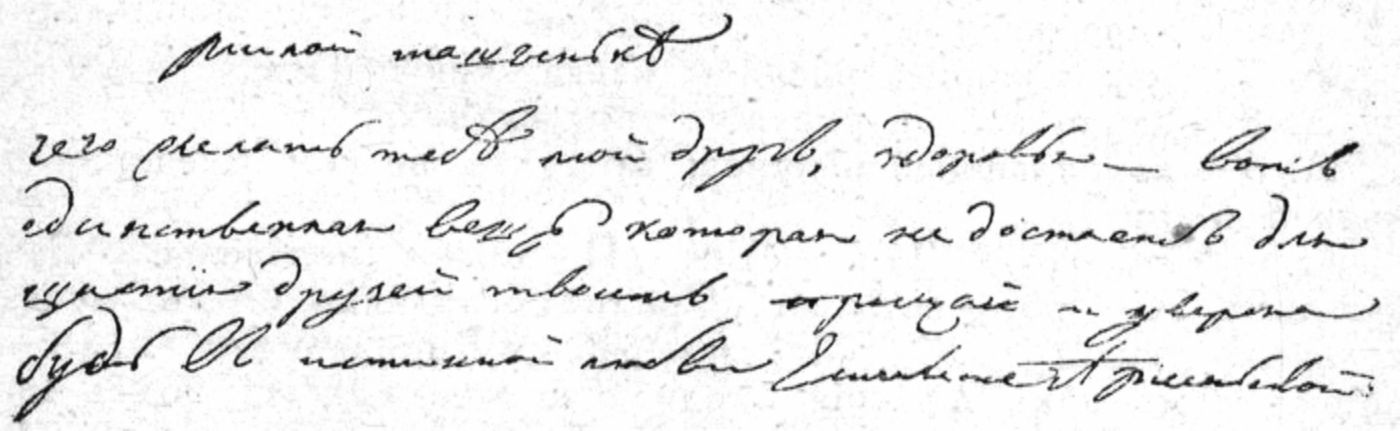 милой машенькѣ
чего желать тебѣ мой другъ, здоровья — вотъ
единственная вещь которая не достаетъ для
щастiя друзей твоихъ прощай и уверена
будь в истинной любви